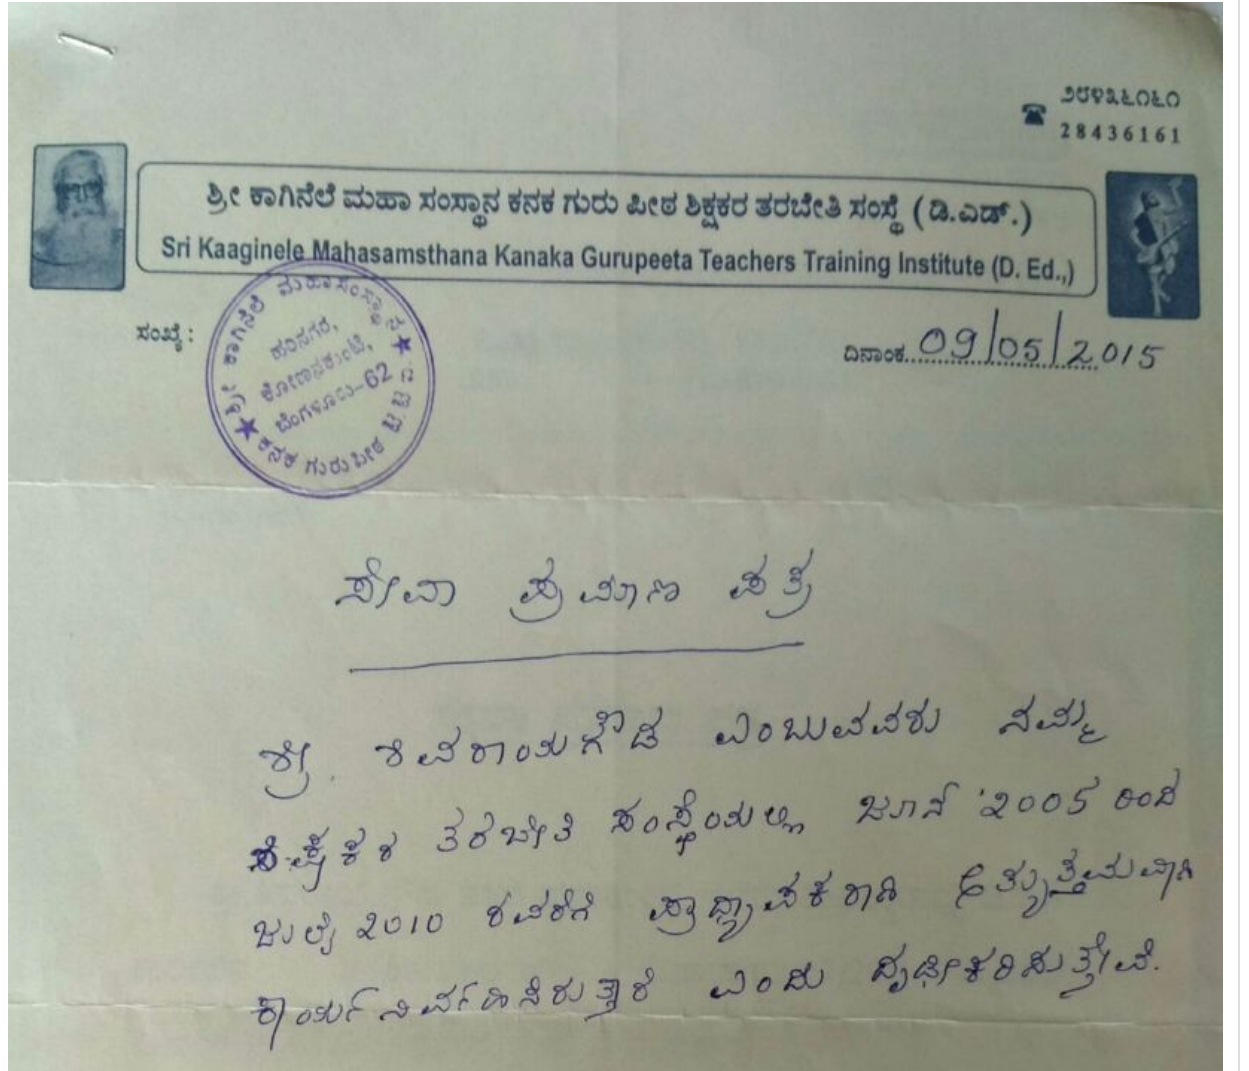 ೨೮೪೩೬೧೬೧
28436161
ಶ್ರೀ ಕಾಗಿನೆಲೆ ಮಹಾ ಸಂಸ್ಥಾನ ಕನಕ ಗುರು ಪೀಠ ಶಿಕ್ಷಕರ ತರಬೇತಿ ಸಂಸ್ಥೆ (ಡಿ.ಎಡ್.)
Sri Kaaginele Mahasamsthana Kanaka Gurupeeta Teachers Training Institute (D. Ed.,)
ಸಂಖ್ಯೆ :
ದಿನಾಂಕ 09/05/2015
ಶ್ರೀ ಕಾಗಿನೆಲೆ ಮಹಾಸಂಸ್ಥಾನ
ಹರಿನಗರ,
ಕೋಣನಕುಂಟೆ,
ಬೆಂಗಳೂರು-62
ಕನಕ ಗುರುಪೀಠ
ಸೇವಾ ಪ್ರಮಾಣ ಪತ್ರ
ಶ್ರೀ. ಶಿವರಾಮಗೌಡ ಎಂಬುವವರು ನಮ್ಮ
ಶಿಕ್ಷಕರ ತರಬೇತಿ ಸಂಸ್ಥೆಯಲ್ಲಿ ಜೂನ್ '2005 ರಿಂದ
ಜುಲೈ 2010 ರವರೆಗೆ ಪ್ರಾಧ್ಯಾಪಕರಾಗಿ ಅತ್ಯುತ್ತಮವಾಗಿ
ಕಾರ್ಯನಿರ್ವಹಿಸಿರುತ್ತಾರೆ ಎಂದು ದೃಢೀಕರಿಸುತ್ತೇವೆ.